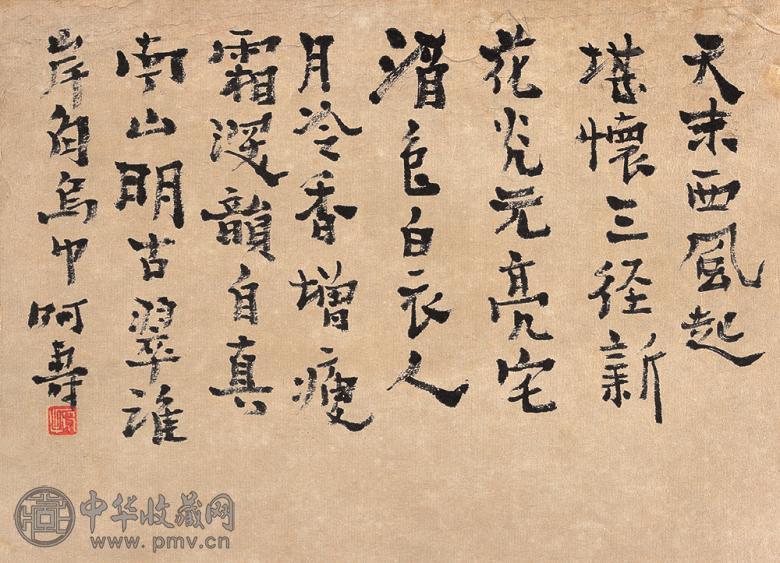 天末西風起
堪懷三径新
花光元亮宅
酒色白衣人
月冷香增瘦
霜深韻自真
南山明古翠誰
岸角烏巾 阿壽
中华收藏网
www.pmv.cn